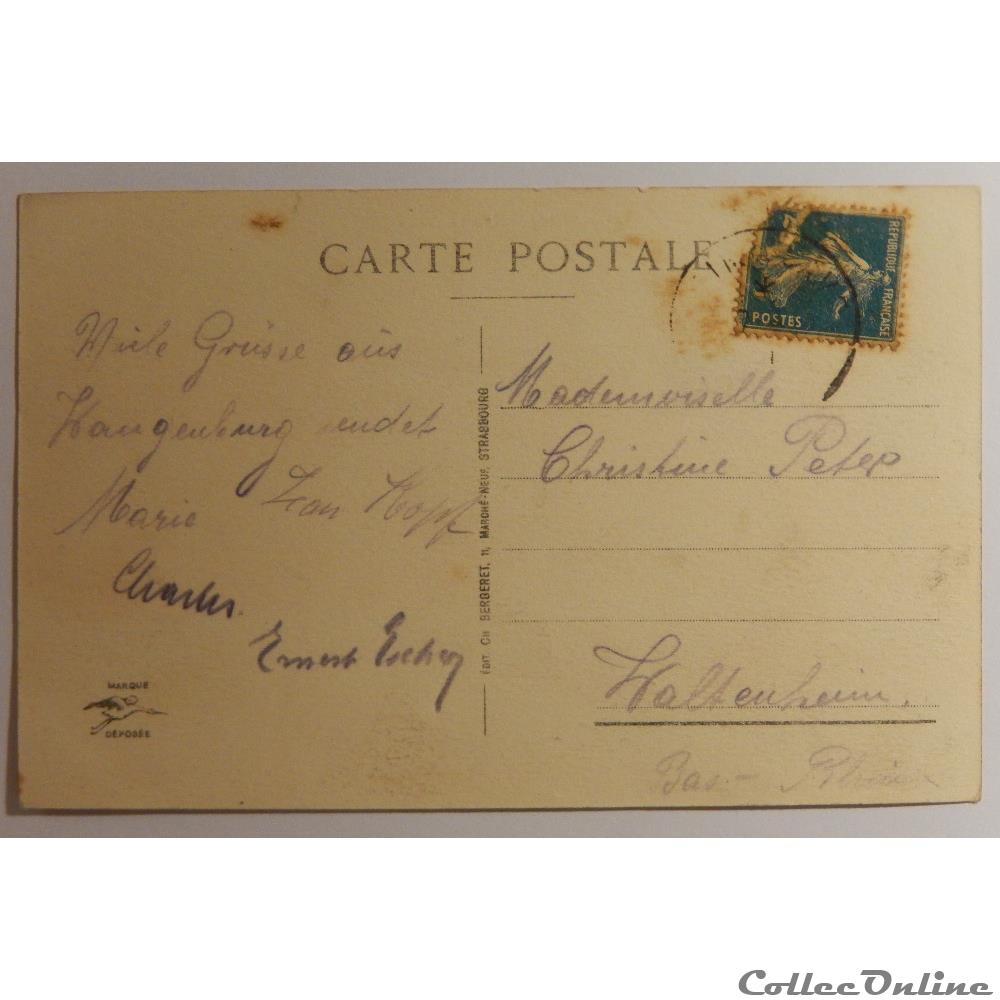 CARTE POSTALE
RÉPUBLIQUE FRANÇAISE
POSTES
Viele Grüsse aus
Wangenburg sendet
Marie
Charles.
Ernest
Mademoiselle
Christine Peter
Waltenheim.
Bas-Rhin
ÉDIT. CH BERGERET, 11, MARCHÉ-NEUF, STRASBOURG
MARQUE
DÉPOSÉE
CollecOnline